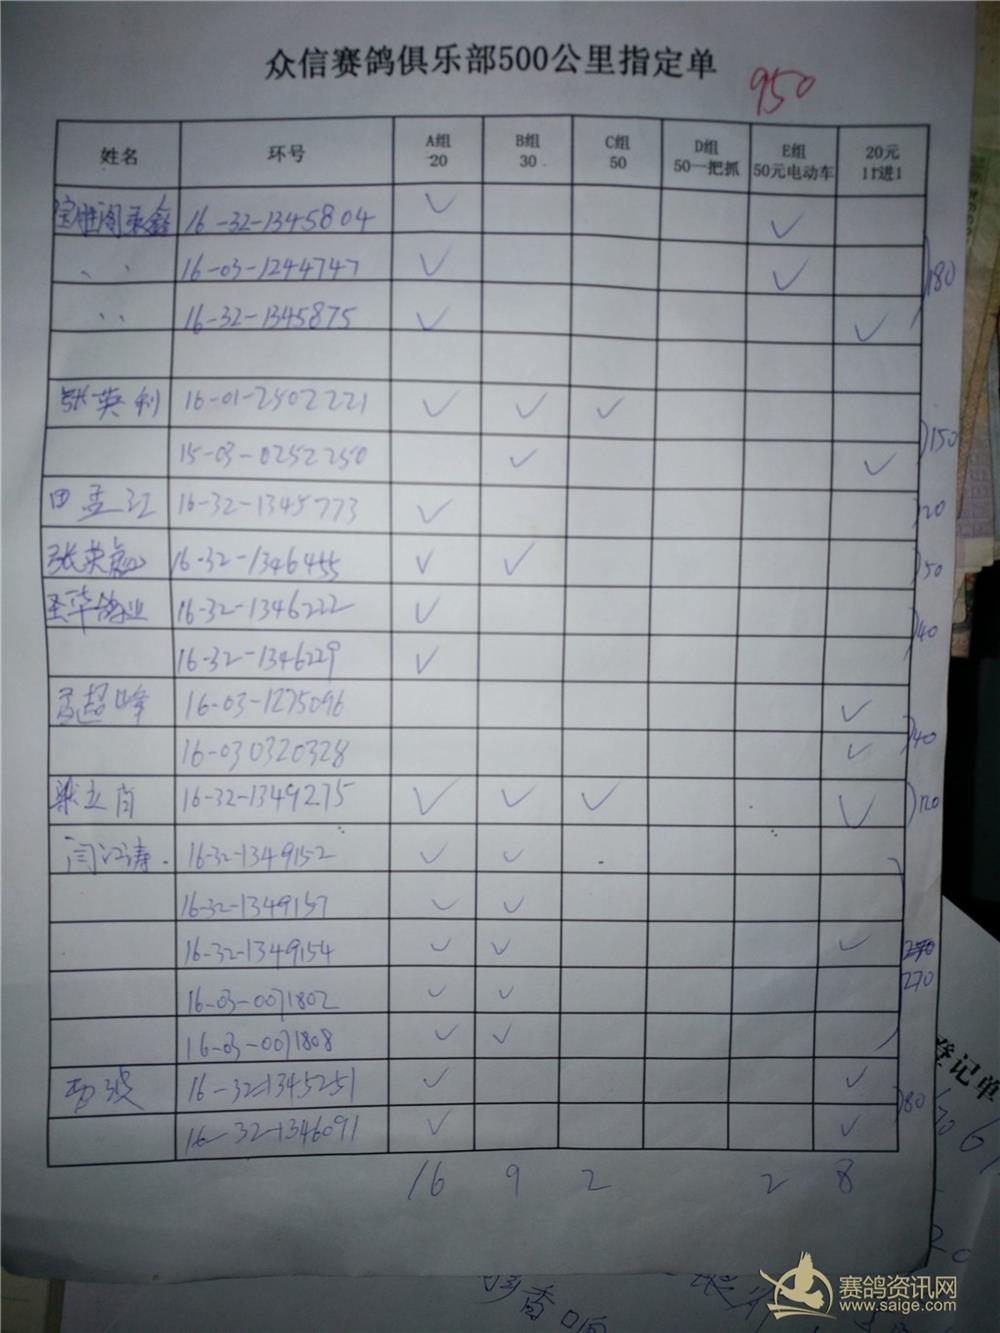 众信赛鸽俱乐部500公里指定单
950
姓名 环号 A组 20 B组 30 C组 50 D组 50一把抓 E组 50元电动车 20元 11进1
16-32-1345804 ✓ ✓
、、 16-03-1244747 ✓ ✓ 180
、、 16-32-1345875 ✓ ✓
张英利 16-01-2502221 ✓ ✓ ✓
15-03-0252250 ✓ ✓ 150
田孟江 16-32-1345773 ✓ 20
张英 16-32-1346455 ✓ ✓ 50
圣华鸽业 16-32-1346222 ✓
16-32-1346229 ✓ 40
超峰 16-03-1275096 ✓
16-030320328 ✓ 40
梁立肖 16-32-1349275 ✓ ✓ ✓ ✓ 120
闫江涛 16-32-1349152 ✓ ✓
16-32-1349157 ✓ ✓
16-32-1349154 ✓ ✓ ✓
16-03-0071802 ✓ ✓ 270
16-03-0071808 ✓ ✓
16-32-1345251 ✓ ✓
16-32-1346091 ✓ ✓ 80
16 9 2 2 8
登记单
赛鸽资讯网
www.saige.com